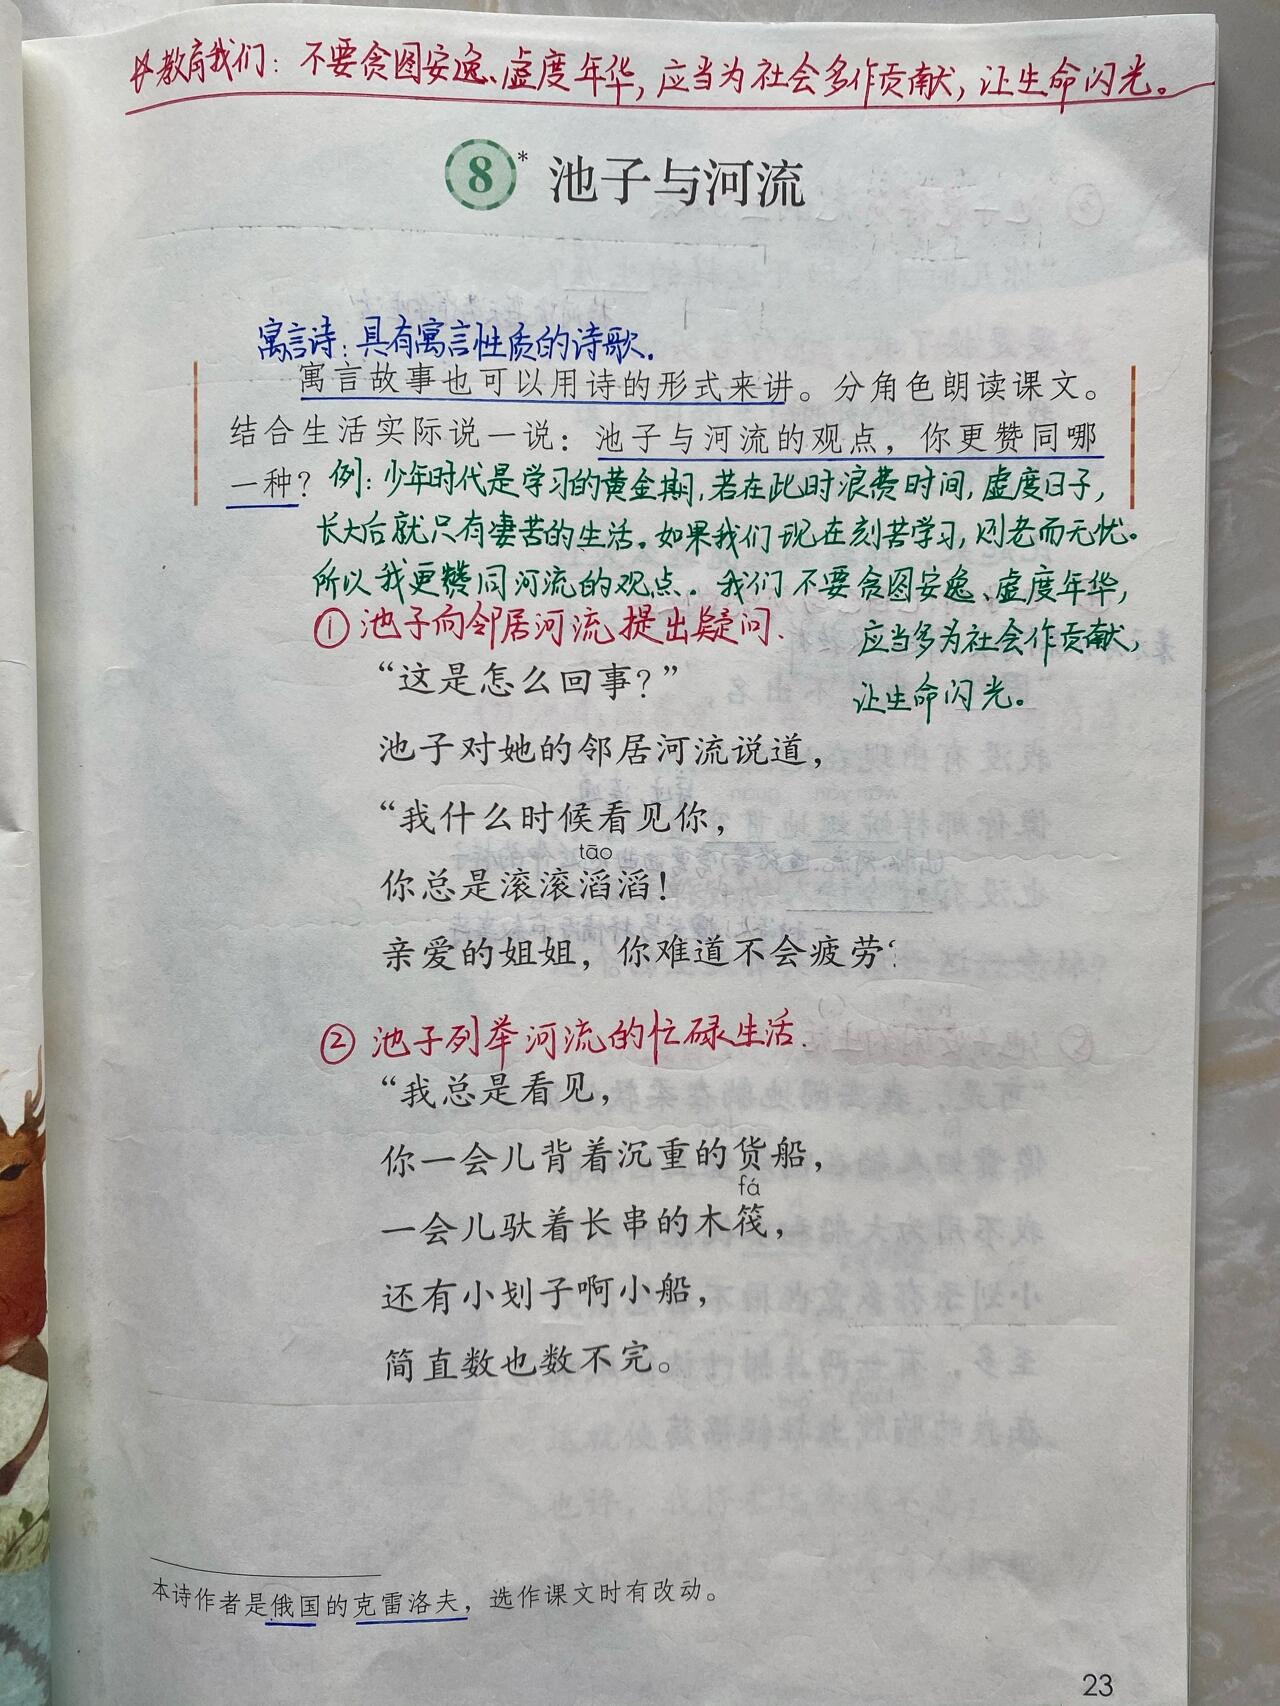 教育我们：不要贪图安逸、虚度年华，应当为社会多作贡献，让生命闪光。
8* 池子与河流
寓言诗：具有寓言性质的诗歌.
寓言故事也可以用诗的形式来讲。分角色朗读课文。
结合生活实际说一说：池子与河流的观点，你更赞同哪
一种？例：少年时代是学习的黄金期，若在此时浪费时间，虚度日子，
长大后就只有凄苦的生活。如果我们现在刻苦学习，则老而无忧。
所以我更赞同河流的观点。我们不要贪图安逸、虚度年华，
应当多为社会作贡献，
让生命闪光。
①池子向邻居河流提出疑问.
“这是怎么回事？”
池子对她的邻居河流说道，
“我什么时候看见你，
tāo
你总是滚滚滔滔！
亲爱的姐姐，你难道不会疲劳？
②池子列举河流的忙碌生活.
“我总是看见，
你一会儿背着沉重的货船，
fá
一会儿驮着长串的木筏，
还有小划子啊小船，
简直数也数不完。
本诗作者是俄国的克雷洛夫，选作课文时有改动。
23